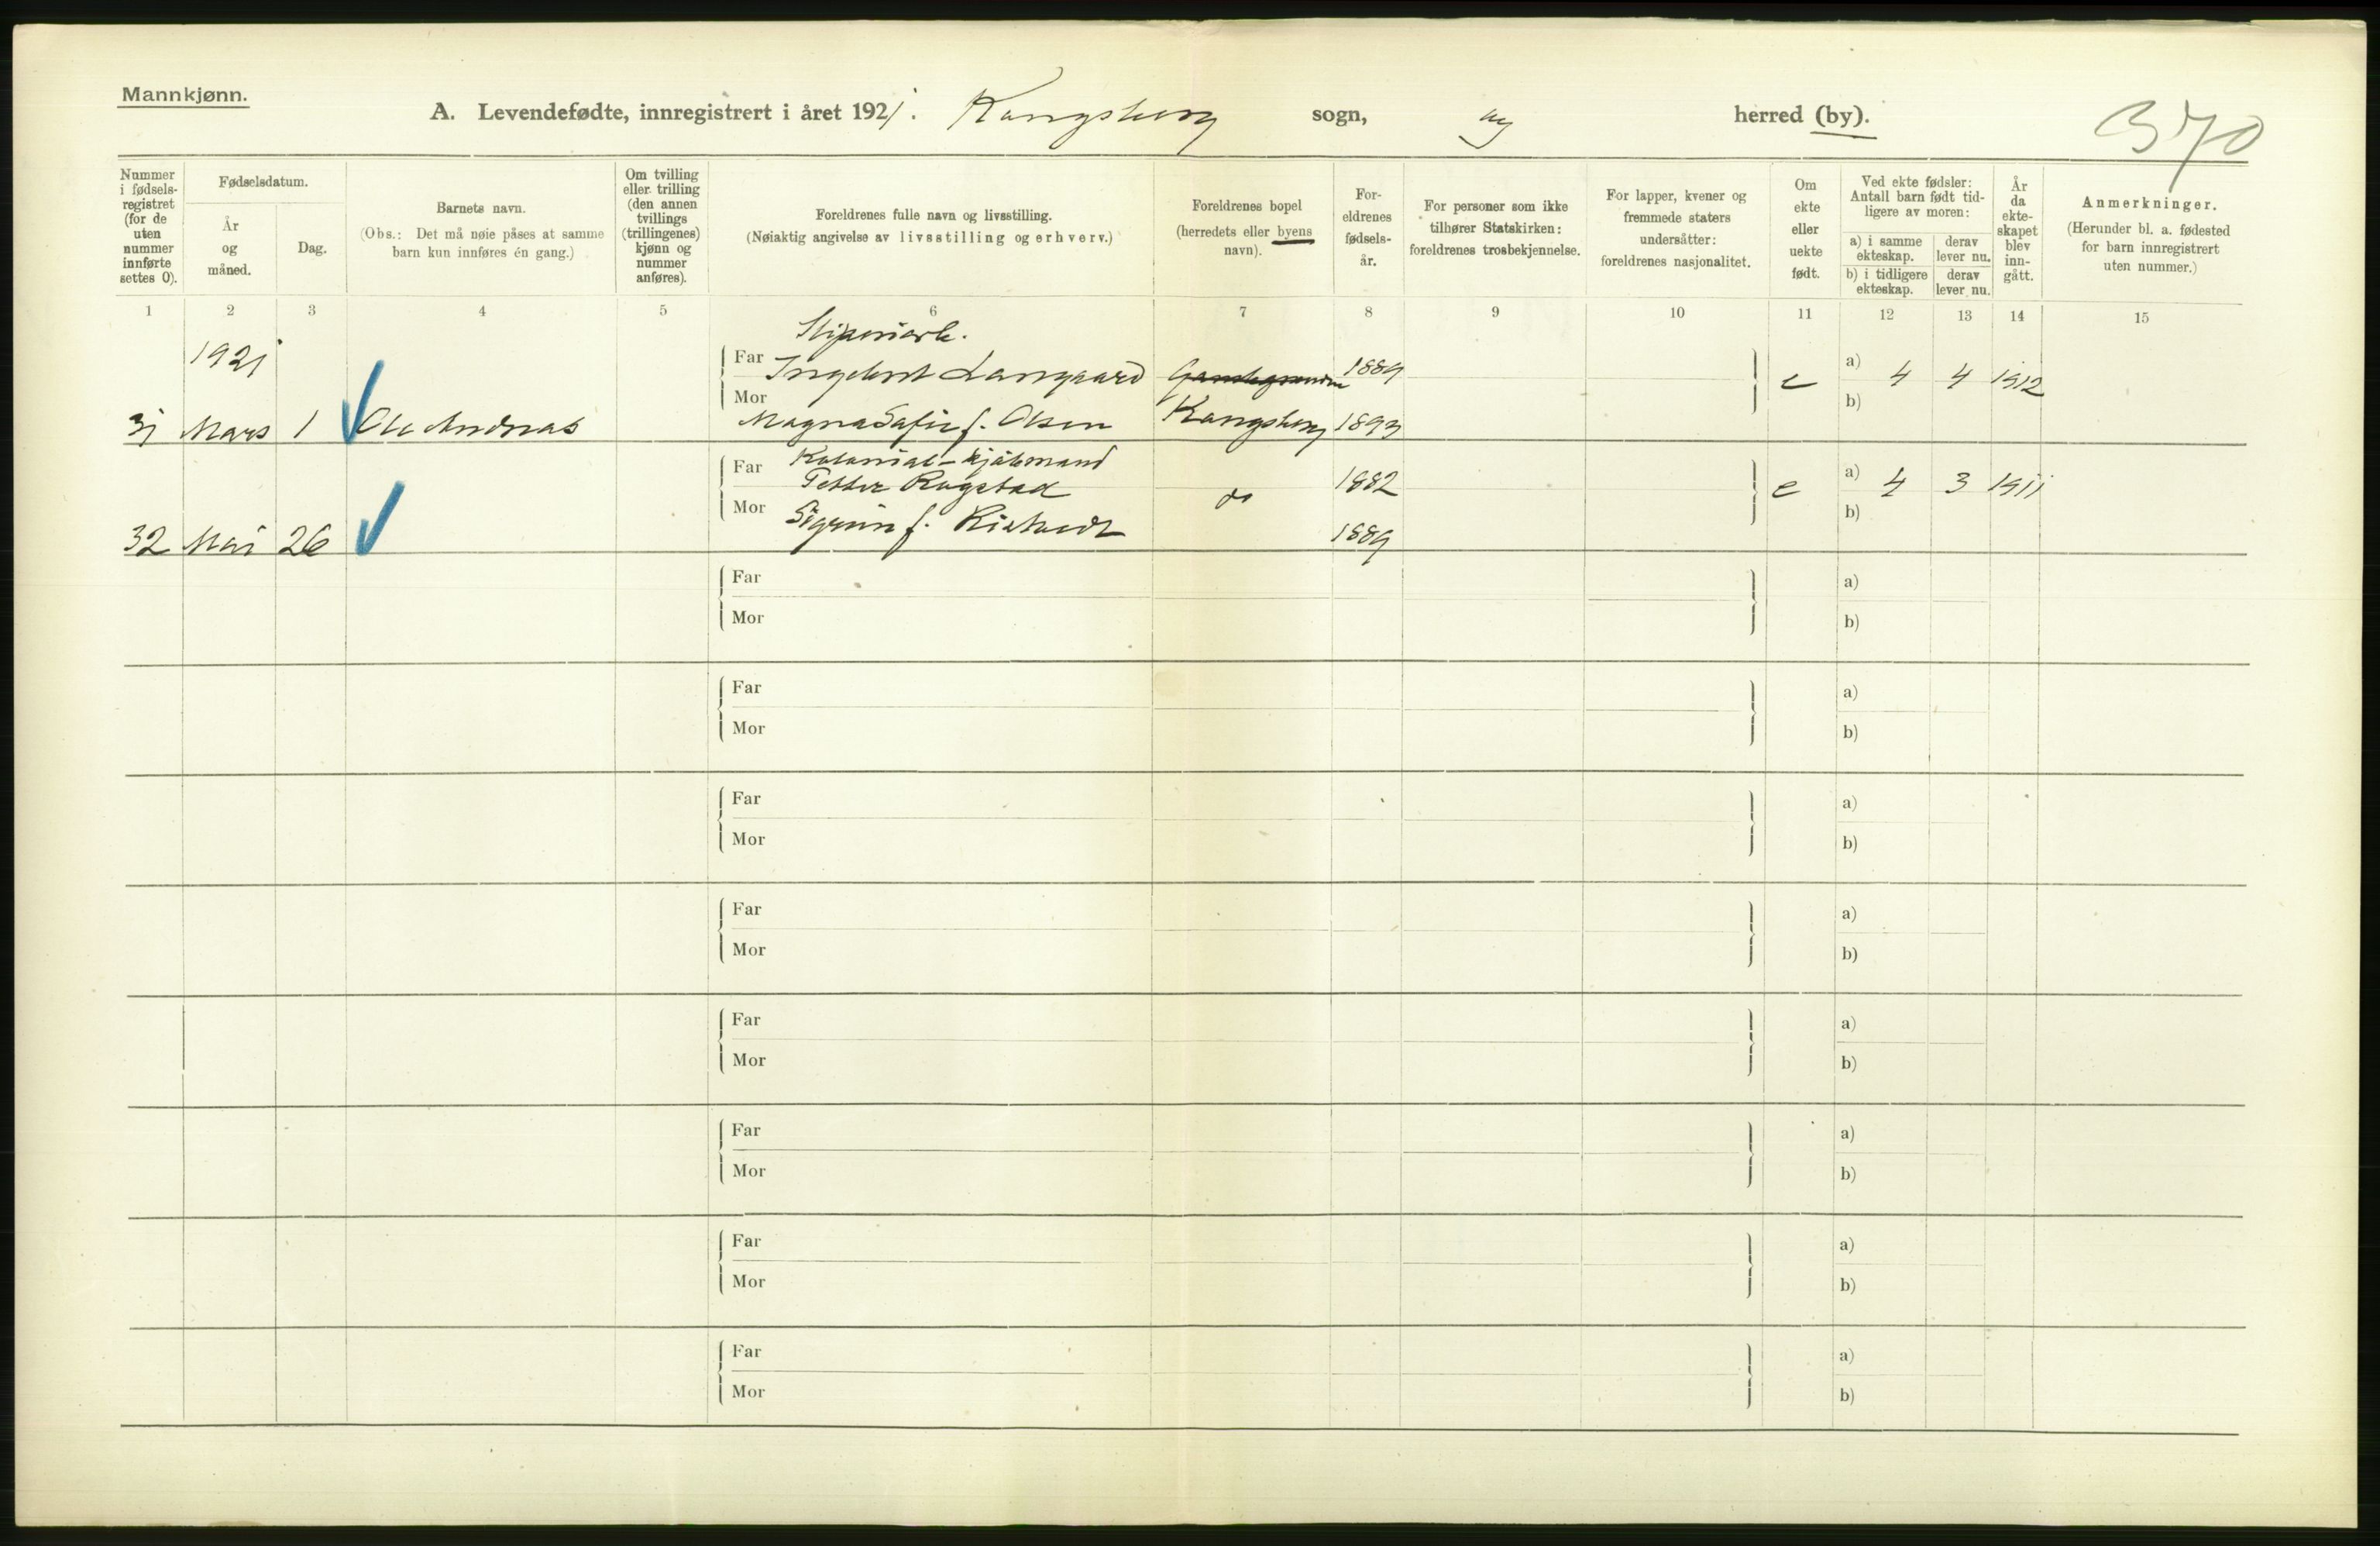 Mannkjønn.
A. Levendefødte, innregistrert i året 1921. Kongsberg sogn, by herred (by).
370
Nummer i fødsels-registret (for de uten nummer innførte settes 0).
Fødselsdatum.
År og måned.
Dag.
Barnets navn.
(Obs.: Det må nøie påses at samme barn kun innføres én gang.)
Om tvilling eller trilling (den annen tvillings (trillingenes) kjønn og nummer anføres).
Foreldrenes fulle navn og livsstilling.
(Nøiaktig angivelse av livsstilling og erhverv.)
Foreldrenes bopel (herredets eller byens navn).
For-eldrenes fødsels-år.
For personer som ikke tilhører Statskirken: foreldrenes trosbekjennelse.
For lapper, kvener og fremmede staters undersåtter: foreldrenes nasjonalitet.
Om ekte eller uekte født.
Ved ekte fødsler: Antall barn født tid-ligere av moren:
a) i samme ekteskap.
derav lever nu.
b) i tidligere ekteskap.
derav lever nu.
År da ekte-skapet blev inn-gått.
Anmerkninger.
(Herunder bl. a. fødested for barn innregistrert uten nummer.)
1 2 3 4 5 6 7 8 9 10 11 12 13 14 15
1921
Far Ingebret Langaard 1889 e a) 4 4 1912
Mor b)
31 Mars 1 Ole Andreas Magna Sofie f. Olsen Kongsberg 1893
Kolonial-kjøbmand
Far Petter Rugstad do 1882 e a) 4 3 1911
Mor Sigrun f. b)
32 Mai 26 1889
Far a)
Mor b)
Far a)
Mor b)
Far a)
Mor b)
Far a)
Mor b)
Far a)
Mor b)
Far a)
Mor b)
Far a)
Mor b)
Far a)
Mor b)